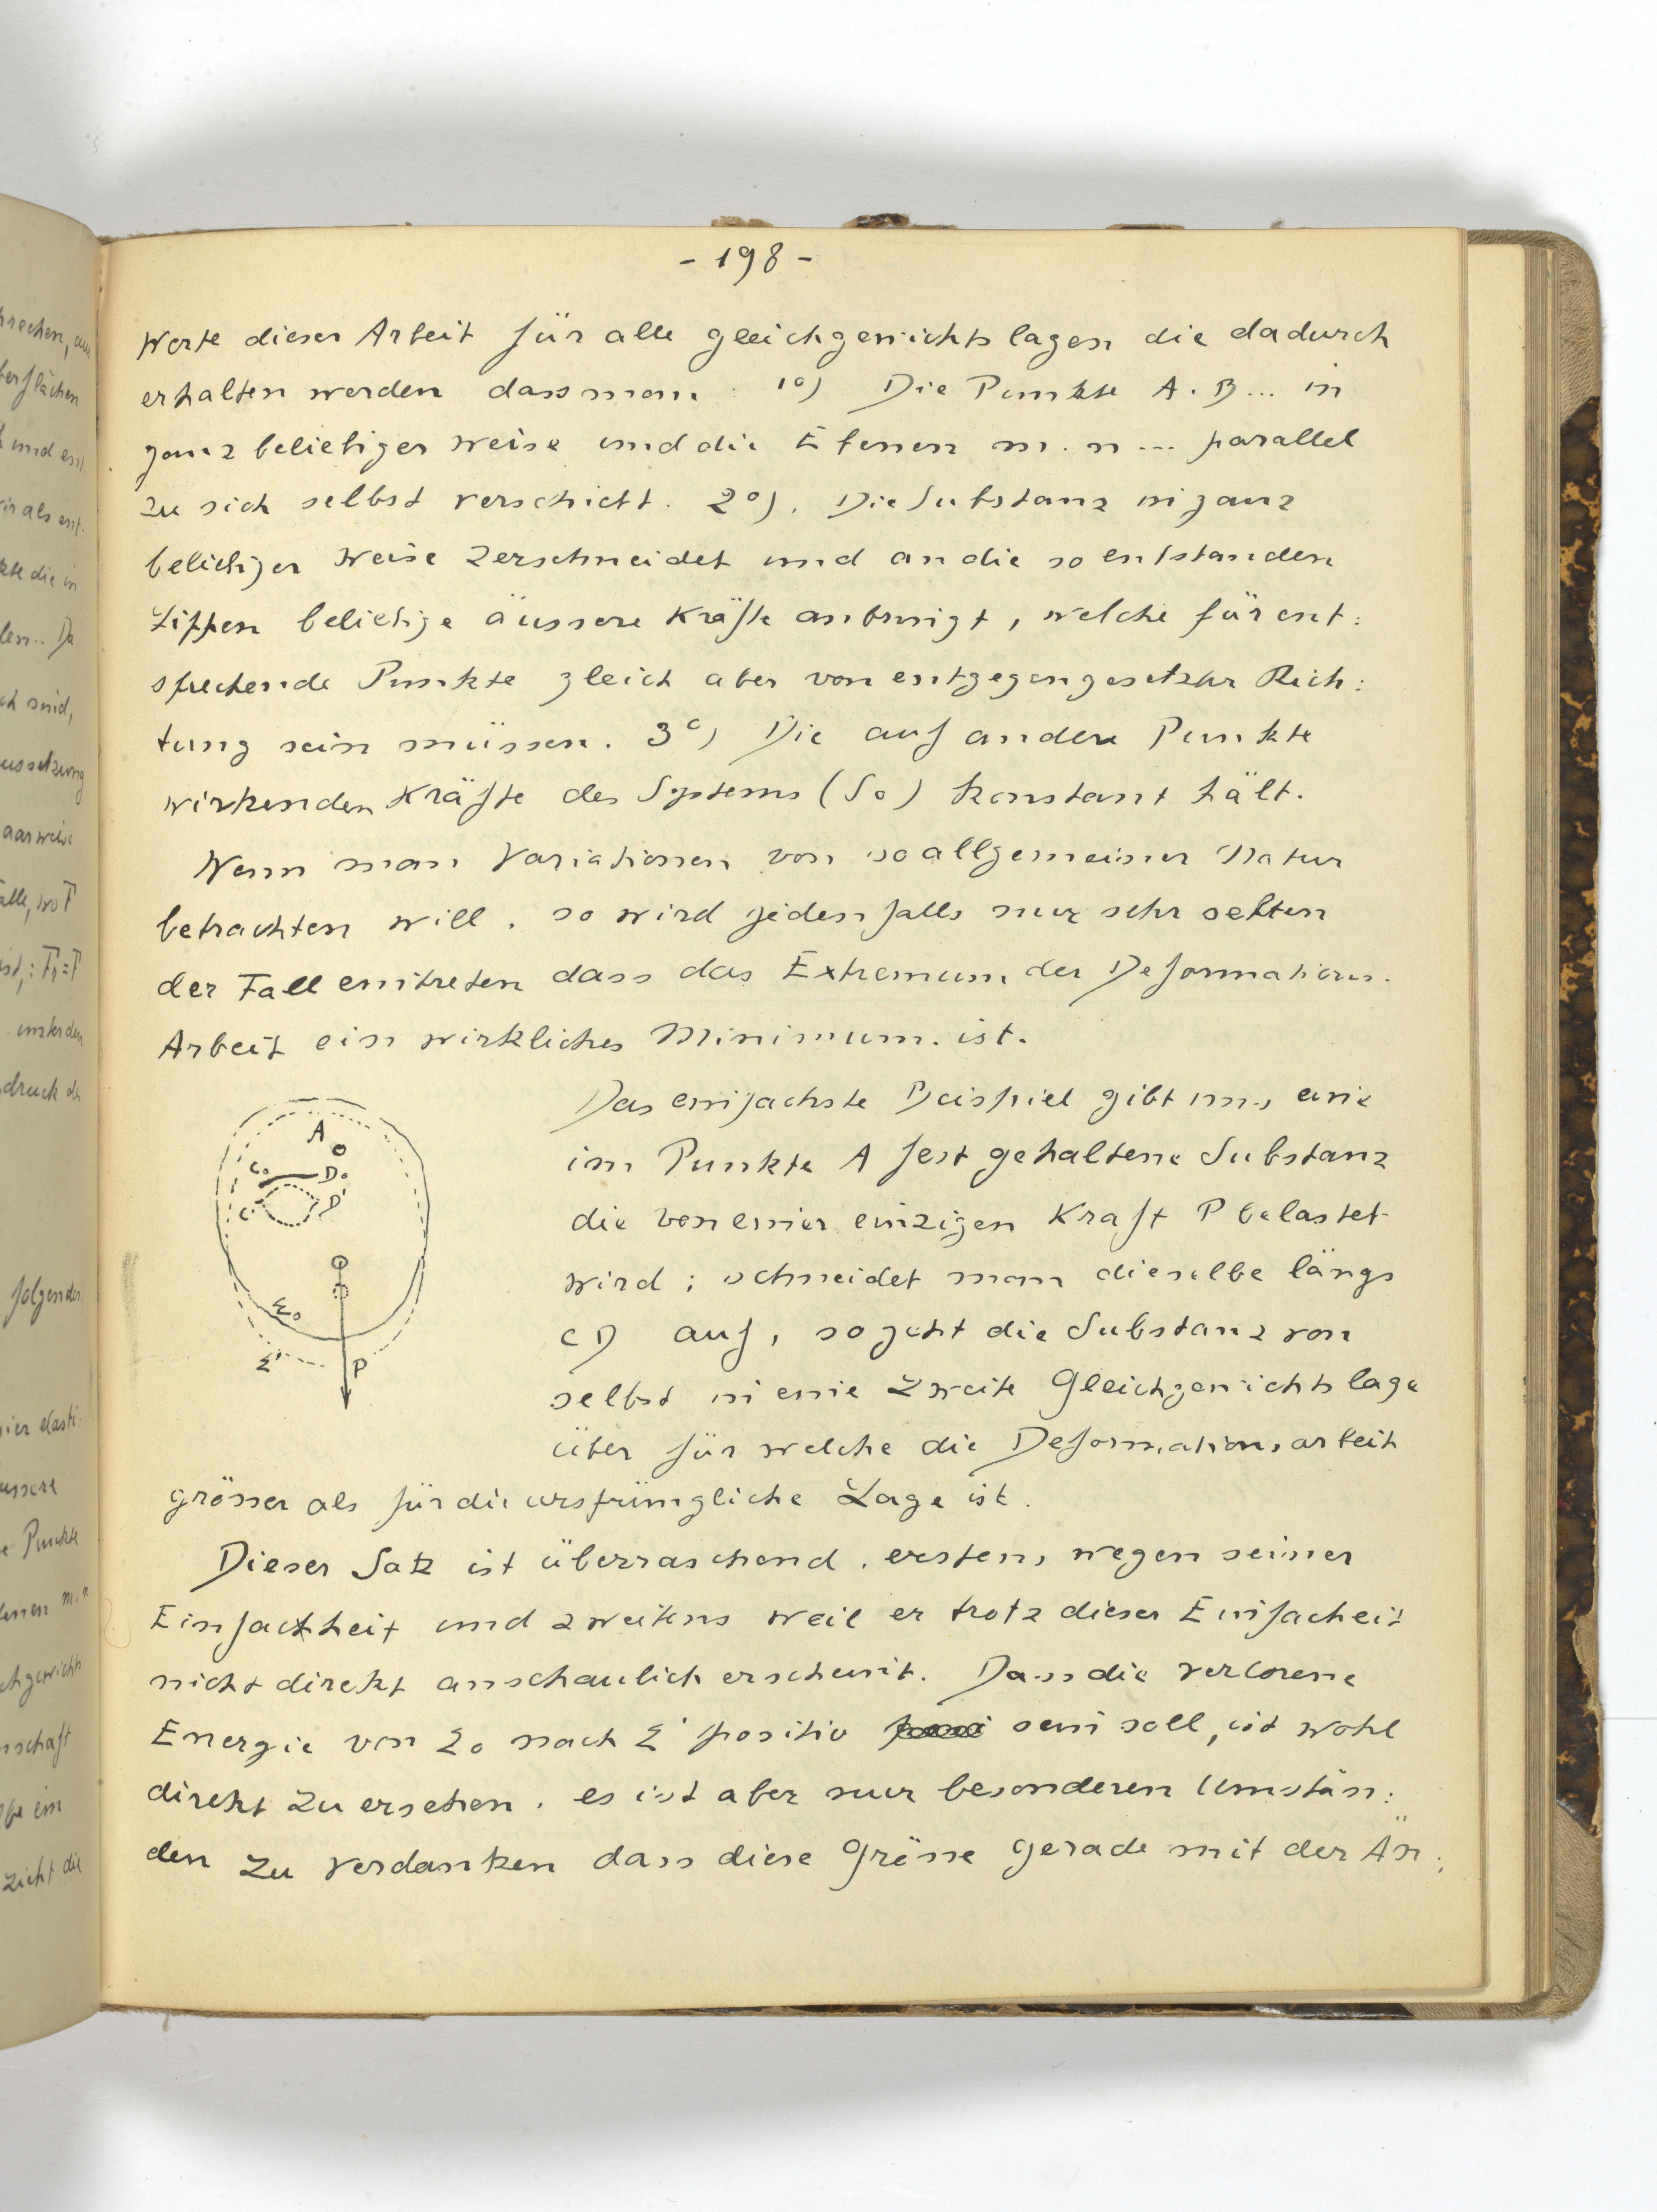 - 198 -
Werte dieser Arbeit für alle gleichgewichtslagen die dadurch
erhalten werden dass man : 1°) Die Punkte A. B... in
ganz beliebiger Weise und die Ebenen m. n... parallel
zu sich selbst verschiebt. 2°). Die Substanz in ganz
beliebiger Weise zerschneidet und an die so entstanden
Lippen beliebige äussere Kräfte anbringt, welche für ent:
sprechende Punkte gleich aber von entgegengesetzter Rich:
tung sein müssen. 3°) Die auf andere Punkte
wirkenden Kräfte des Systems (So) konstant hält.
Wenn man Variationen von so allgemeiner Natur
betrachten will, so wird jedenfalls nur sehr selten
der Fall eintreten dass das Extremum der Deformations-
Arbeit ein wirkliches Minimum ist.
Das einfachste Beispiel gibt uns eine
im Punkte A fest gehaltene Substanz
die von einer einzigen Kraft P belastet
wird ; schneidet man dieselbe längs
CD auf, so geht die Substanz von
selbst in eine zweite Gleichgewichtslage
über für welche die Deformationsarbeit
grösser als für die ursprüngliche Lage ist.
Dieser Satz ist überraschend, erstens wegen seiner
Einfachheit und zweitens weil er trotz dieser Einfacheit
nicht direkt anschaulich erscheint. Dass die verlorene
Energie von Σo nach Σ' positiv sein soll, ist wohl
direkt zu ersehen, es ist aber nur besonderen Umstän:
den zu verdanken dass diese Grösse gerade mit der Än:
A
Co
Do
C'
D'
Σo
Σ'
P